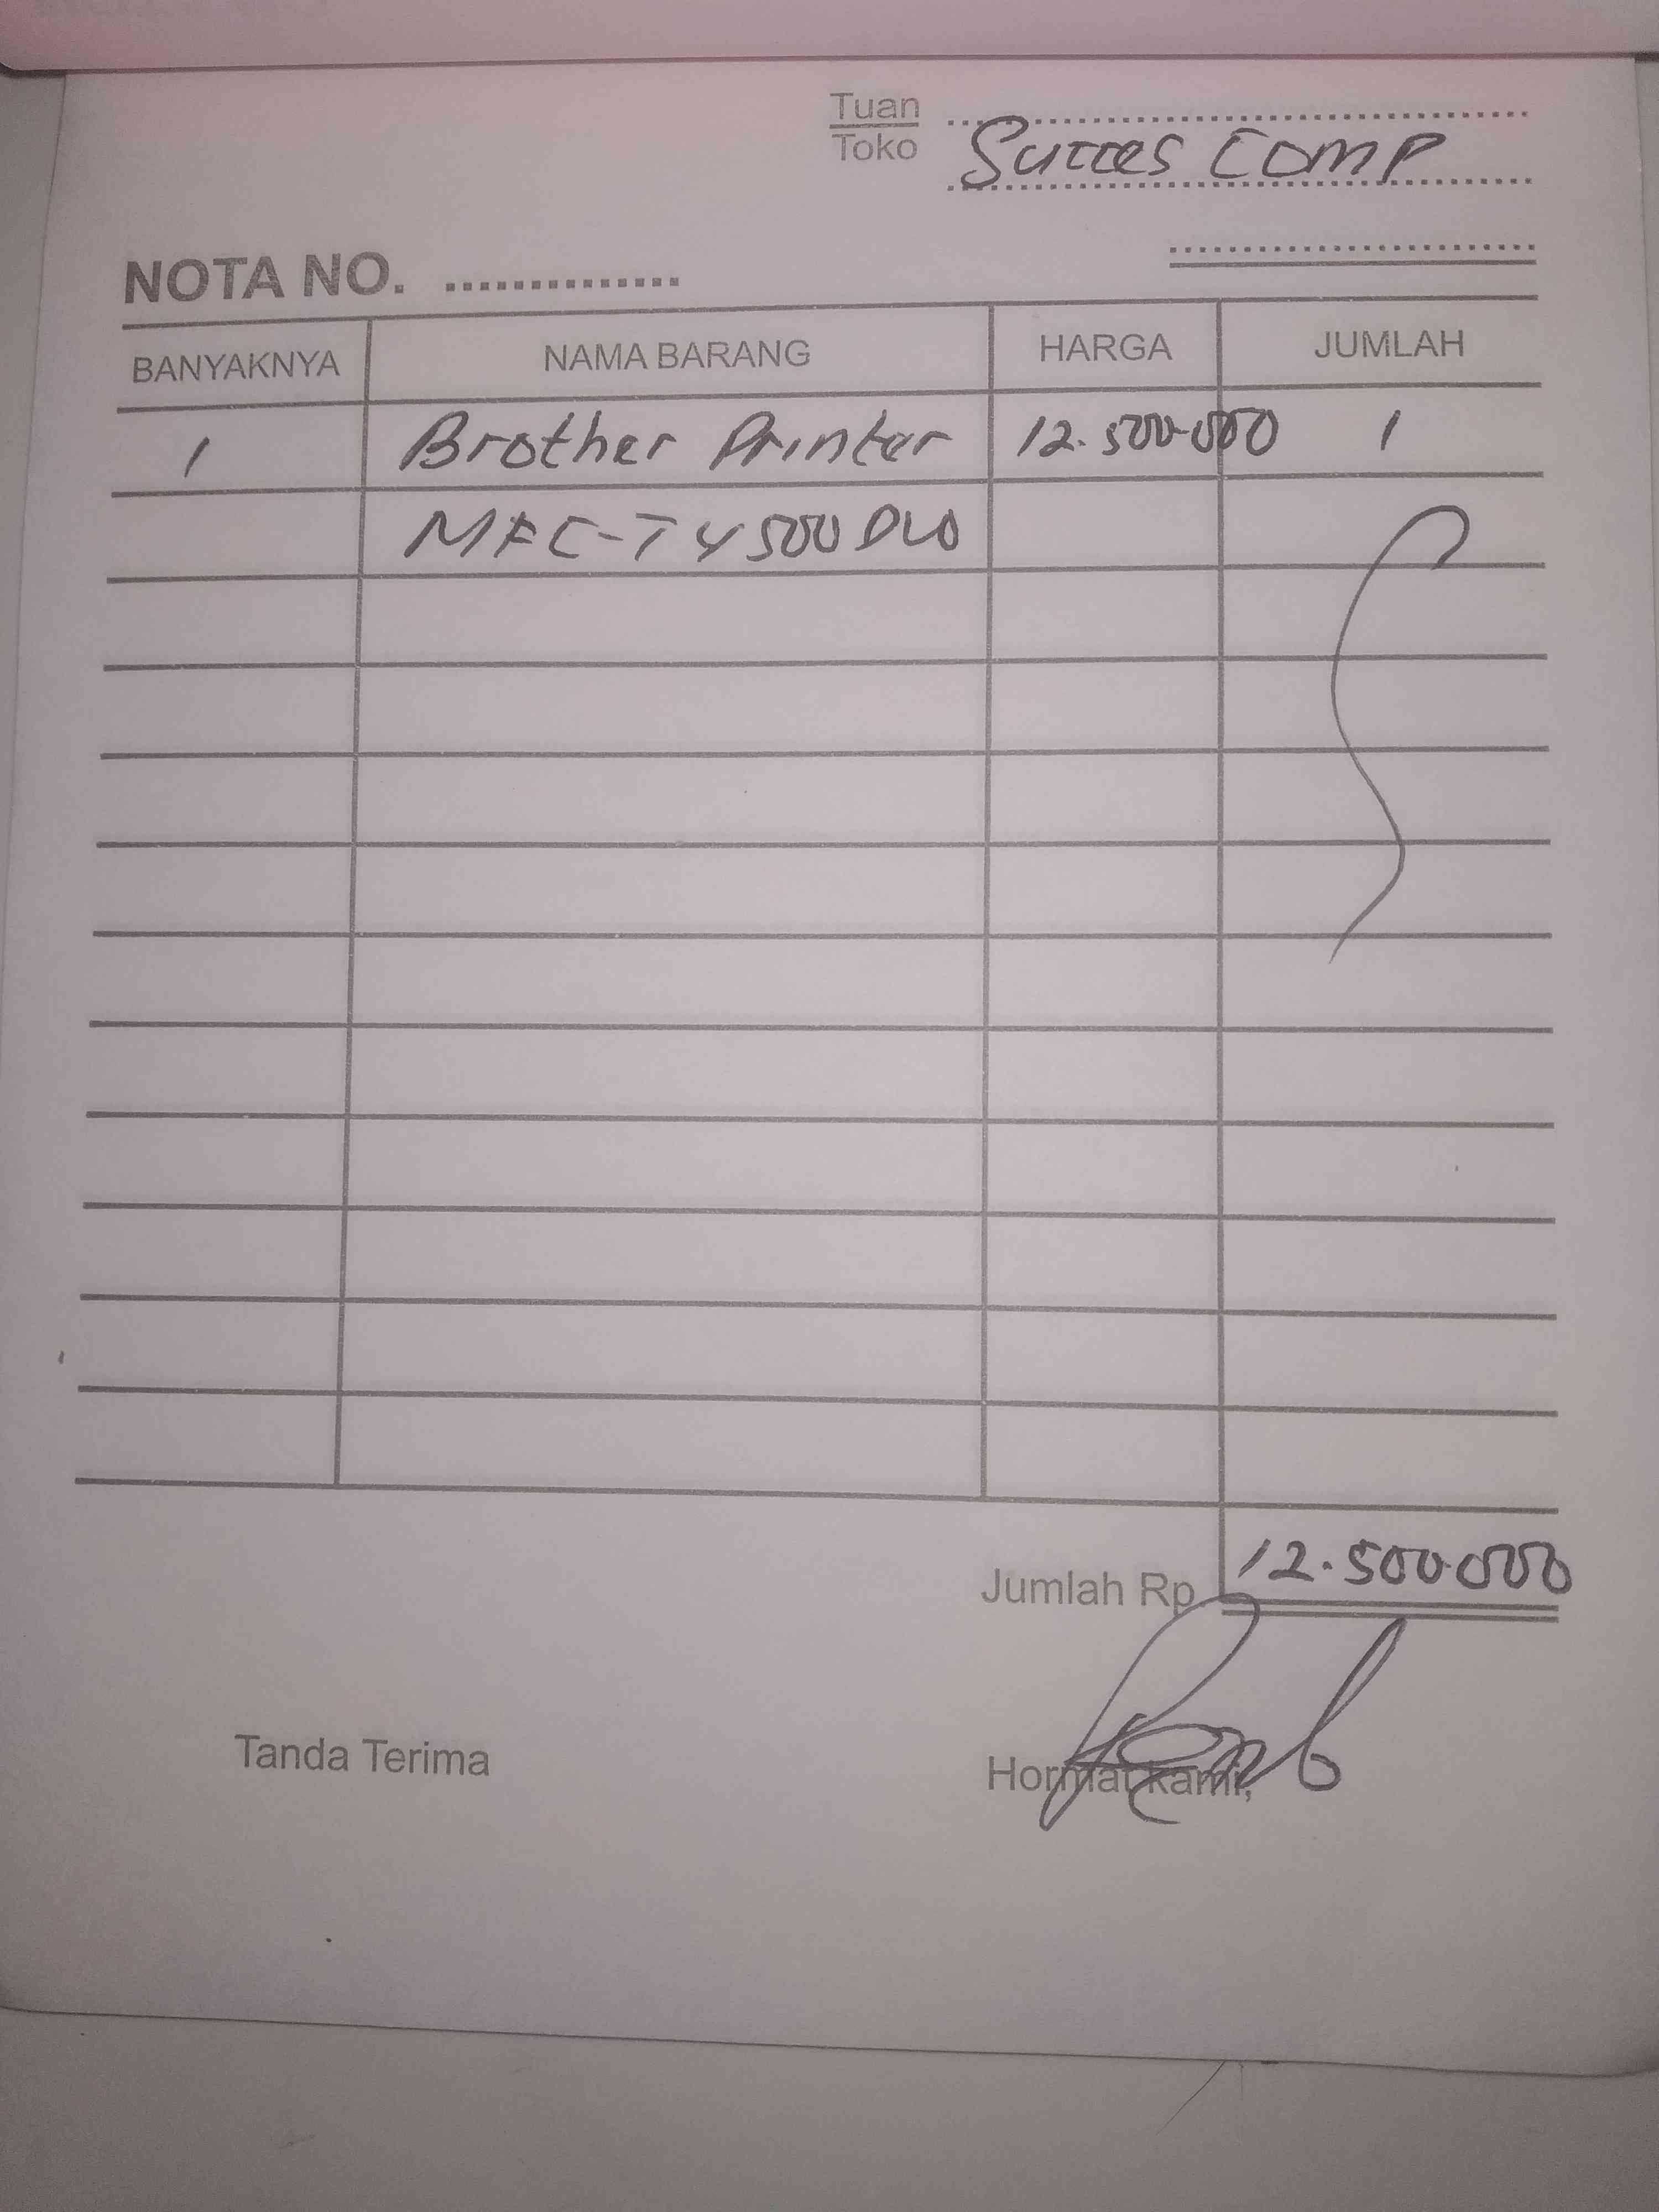 Tuan
Toko Succes Comp
NOTA NO. ..............
BANYAKNYA NAMA BARANG HARGA JUMLAH
1 Brother Printer 12.500.000 1
MFC-T4500DW
Jumlah Rp. 12.500.000
Tanda Terima Hormat kami,